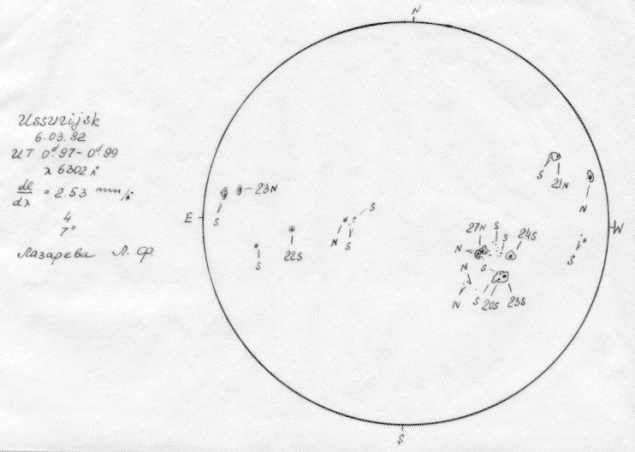 Ussurijsk
6.03.82
UT 0ᵈ.97 - 0ᵈ.99
λ 6302 Å
dl/dλ = 2.53 mm/Å
4
7°
Лазарева Л. Ф.
N
S
21N
N
23N
S
E
S
N
S
S
22S
27N
S
S
24S
N
W
S
N
S
N
S
20S
23S
S